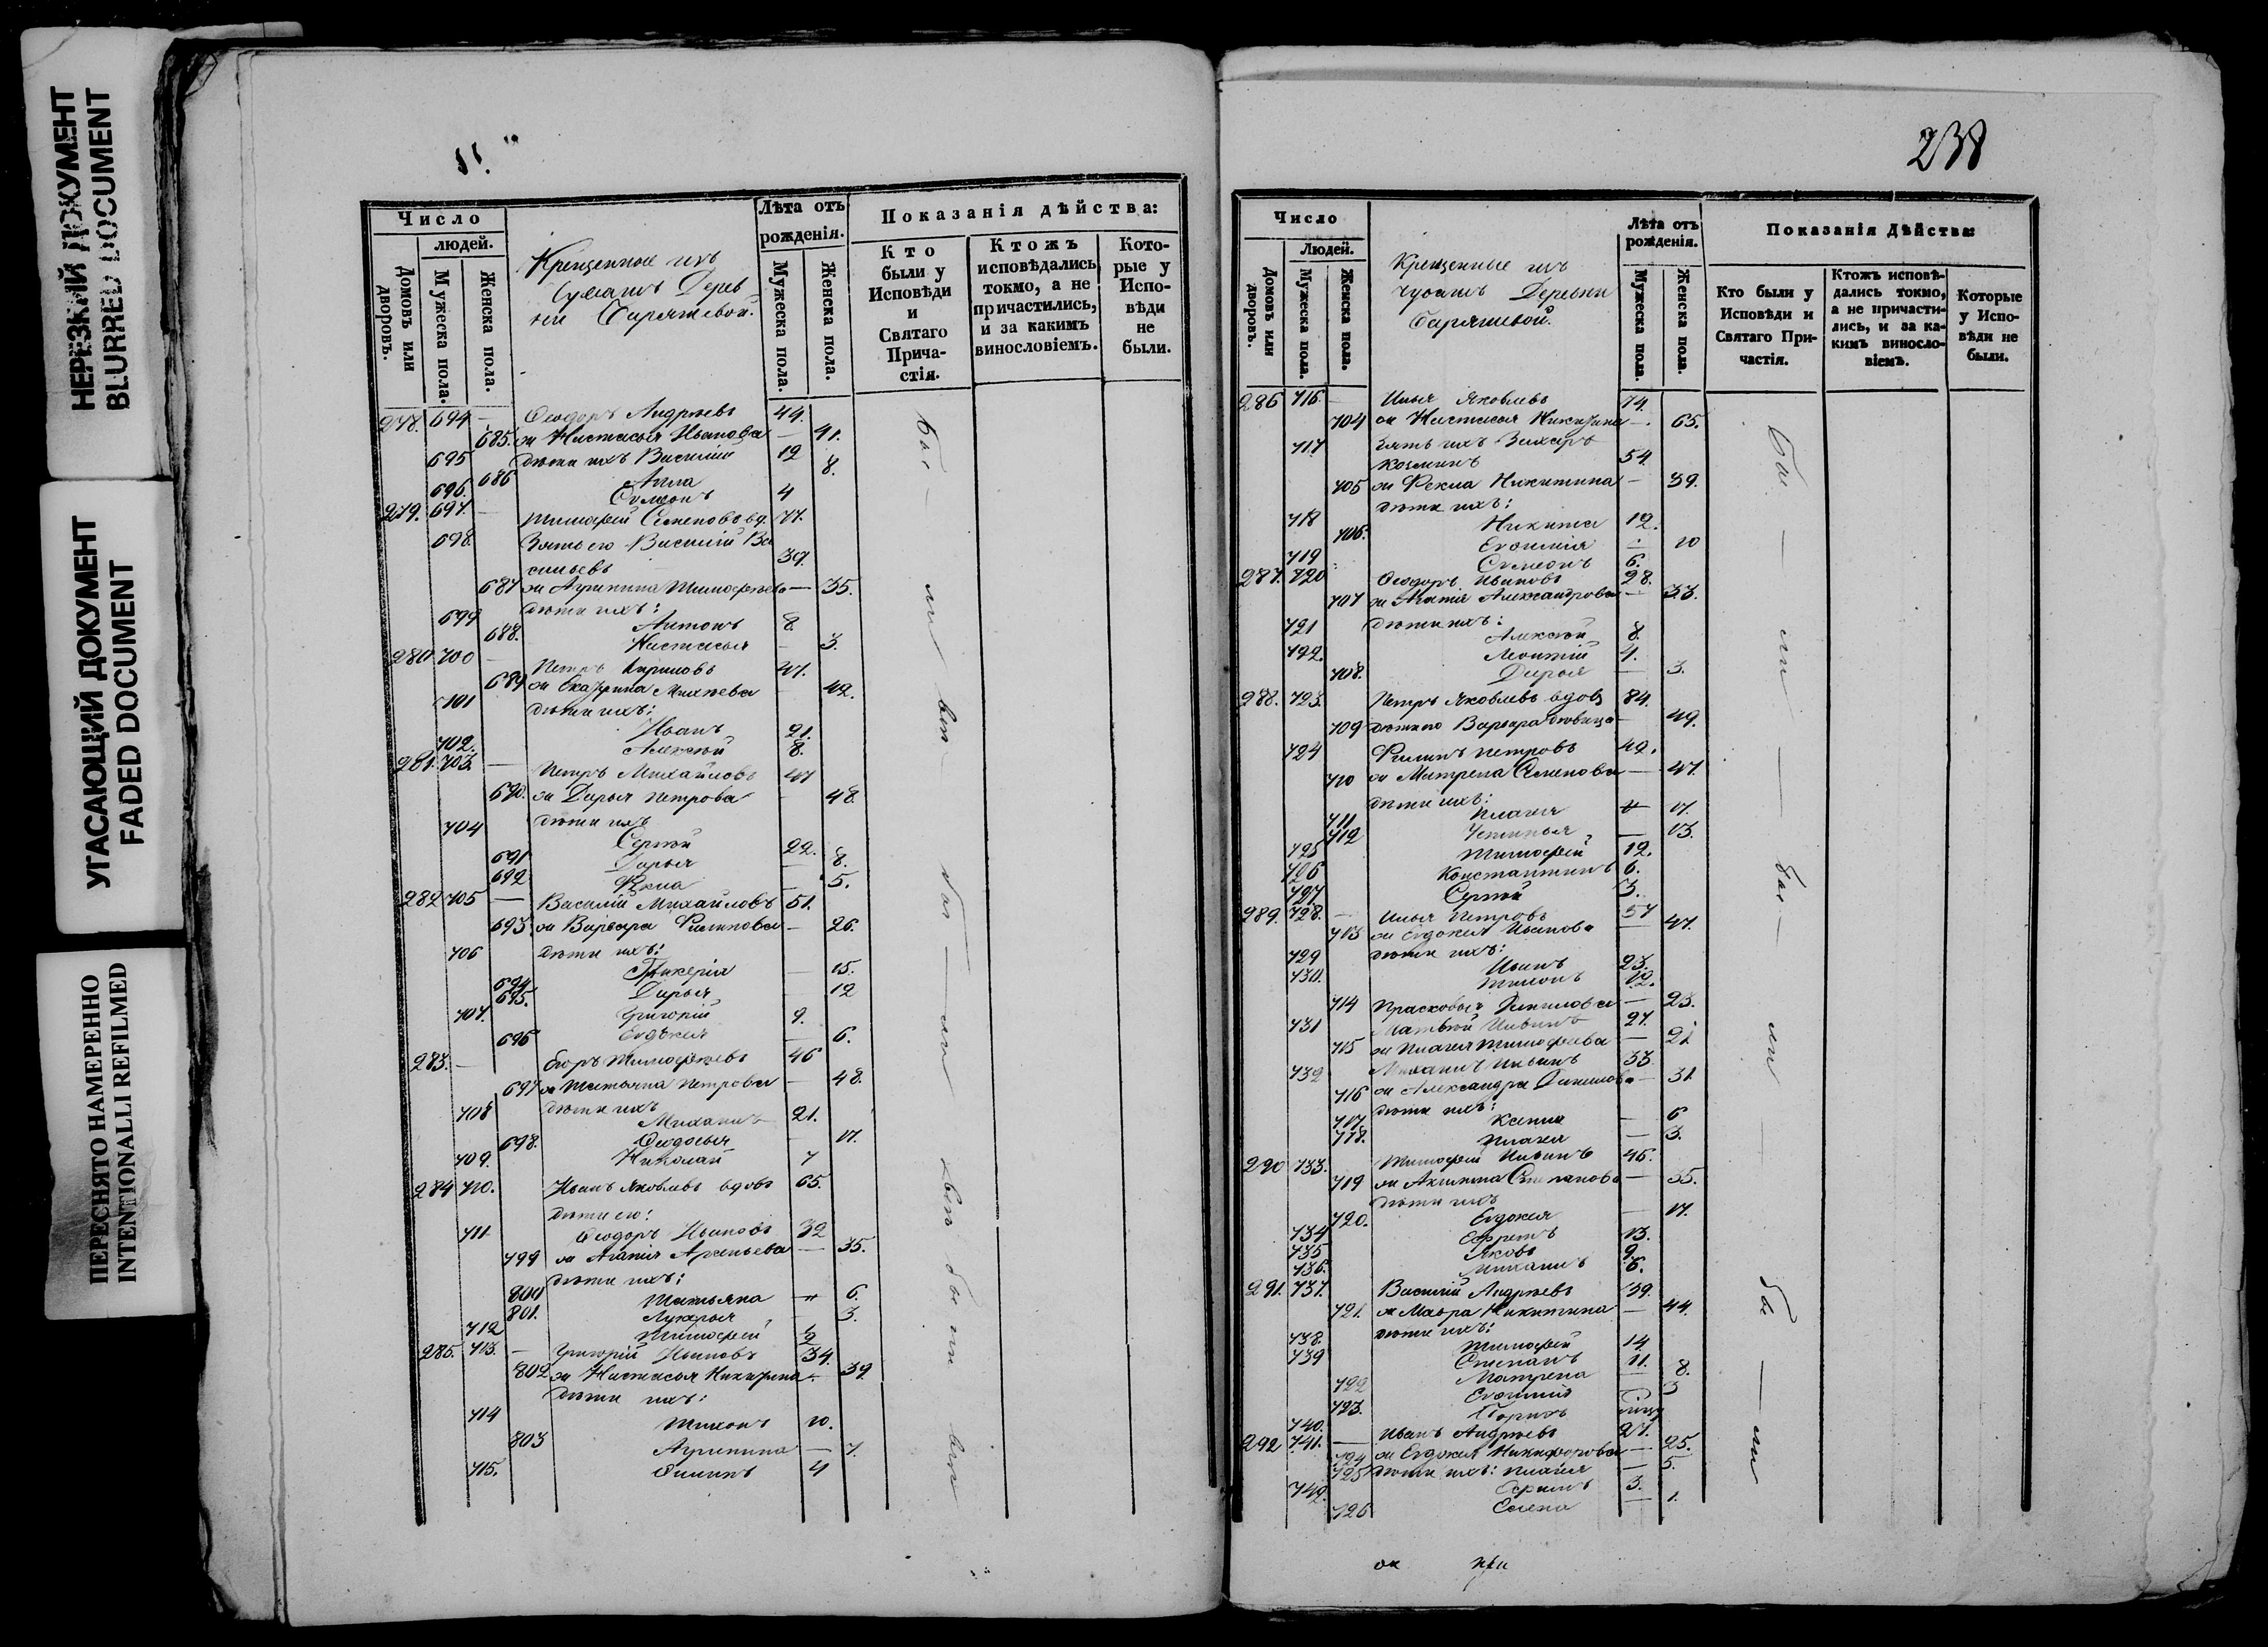 НЕРЕЗКИЙ ДОКУМЕНТ
BLURRED DOCUMENT
УГАСАЮЩИЙ ДОКУМЕНТ
FADED DOCUMENT
ПЕРЕСНЯТО НАМЕРЕННО
INTENTIONALLI REFILMED
Число
людей.
Домовъ или дворовъ.
Мужеска пола.
Женска пола.
Крещенные изъ
Чувашъ Дерев
ни
Лѣта отъ рожденія.
Мужеска пола.
Женска пола.
Показанія дѣйства:
Кто были у Исповѣди и Святаго Причастія.
Ктожъ исповѣдались токмо, а не причастились, и за какимъ винословіемъ.
Которые у Исповѣди не были.
278. 694 — Ѳеодоръ Андреевъ 44.
685. Настасья Иванова — 41.
695 дѣти ихъ Василий 12
686 Анна 8.
696. Симеонъ 4
279. 697. — Тимофей Семеновъ вд. 77.
698. Зять его Василий Ва
сильевъ 39.
687 Агрипина Тимофеева — 35.
дѣти ихъ:
699 Антонъ 8.
688. Настасья — 3.
280 700 — Петръ Кириловъ 47.
689 Екатерина — 42.
701 дѣти ихъ:
Иванъ 21.
702. Алексей 8.
281. 703. — Петръ Михайловъ 47
690. Дарья Петрова — 48.
704 дѣти ихъ
Сергей 22.
691 Дарья — 8.
692 Фекла — 5.
282 705 — Василий Михайловъ 51.
693. Варвара Филипова — 26.
706 дѣти ихъ:
694 Гликерия — 15.
695. Дарья — 12
707. Григорий 9.
696 Евдокия — 6.
283. — Егоръ Тимофеевъ 46
697 Татьяна Петрова — 48.
708 дѣти ихъ
Михаилъ 21.
698. Ѳеодосья — 17.
709. Николай 7
284 710. Иванъ Яковлевъ вдовъ 65.
дѣти его:
711 Ѳеодоръ Ивановъ 32
799 Агапия — 35.
дѣти ихъ:
800 Татьяна — 6.
801. Лукерья — 3.
712 Тимофей ½
285. 713. — Григорий Ивановъ 34.
802 Настасья — 39
дѣти ихъ:
714 Тихонъ 10.
803 Агрипина — 7.
715. Филипъ 4
238
Число
Людей.
Домовъ или дворовъ.
Мужеска пола.
Женска пола.
Крещенные изъ
чувашъ Деревни
Лѣта отъ рожденія.
Мужеска пола.
Женска пола.
Показанія Дѣйства:
Кто были у Исповѣди и Святаго Причастія.
Ктожъ исповѣдались токмо, а не причастились, и за какимъ винословіемъ.
Которые у Исповѣди не были.
286 716. Илья Яковлевъ 74.
704 Настасья — 65.
717 Зять ихъ Захаръ
Козминъ 54.
705 Фекла Никитина — 39.
дѣти ихъ:
718 Никита 12.
706. Евфимия — 10
719 Симеонъ 6.
287. 720 Ѳеодоръ Ивановъ 28.
707 Агапия Александрова — 33.
721 дѣти ихъ:
Алексей 8.
722. Леонтий 4.
708. Дарья — 3.
288. 723. Петръ Яковлевъ вдов 84.
709 Варвара девица — 49.
724 Филипъ Петровъ 42.
710 Матрена Семенова — 47.
дѣти ихъ:
711 Пелагея 17.
712 Устинья — 13.
725 Тимофей 12.
726 Константинъ 6.
727 Сергей 3.
289. 728. — Илья Петровъ 57
713 Евдокия Иванова — 47.
729 дѣти ихъ:
Иванъ 23.
730. Тихонъ 12.
714 Прасковья Данилова — 23.
731 Матвей Ильинъ 27.
715 Пелагея Тимофеева — 21
732 Михаилъ Ильинъ 33
716 Александра Данилова — 31.
дѣти ихъ:
717 Ксения — 6
718. Пелагея — 3.
290 733. Тимофей Ильинъ 46.
719 Акилина Степанова — 35.
дѣти ихъ
720. Евдокия — 17.
734 Ефремъ 13.
735 Яковъ 9.
736. Михаилъ 6.
291. 737. Василий Андреевъ 39.
721. Мавра Никитина — 44.
дѣти ихъ:
738. Тимофей 14.
739 Степанъ 11.
722 Матрена — 8.
723. Евфимия 3
740.
292 741. — Иванъ Андреевъ 27.
724 Евдокия Никифорова — 25.
725 дѣти ихъ: Пелагея — 5.
742. 3.
726 Елена — 1.